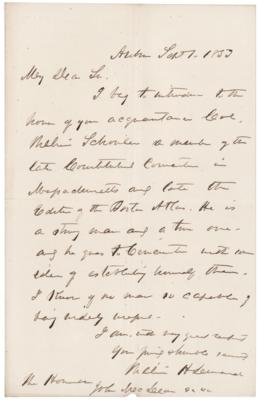 Auburn Sept 1. 1853
My Dear Sir.
I beg to introduce to the
honor of your acquaintance Col.
William Schouler a member of the
late Constitutional Convention in
Massachusetts and late the
Editor of the Boston Atlas. He is
a strong man and a true one.
and he goes to Cincinnati with an
idea of establishing himself there.
I know of no man so capable of
being widely useful.
I am, with very great respect
Your friend & humble servant
William H Seward
The Honorable
John McLean